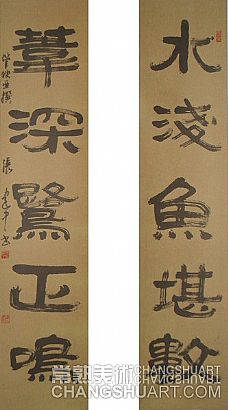 水淺魚堪數
葦深鷺正鳴
常熟美術
CHANGSHUART
常熟美術
CHANGSHUART